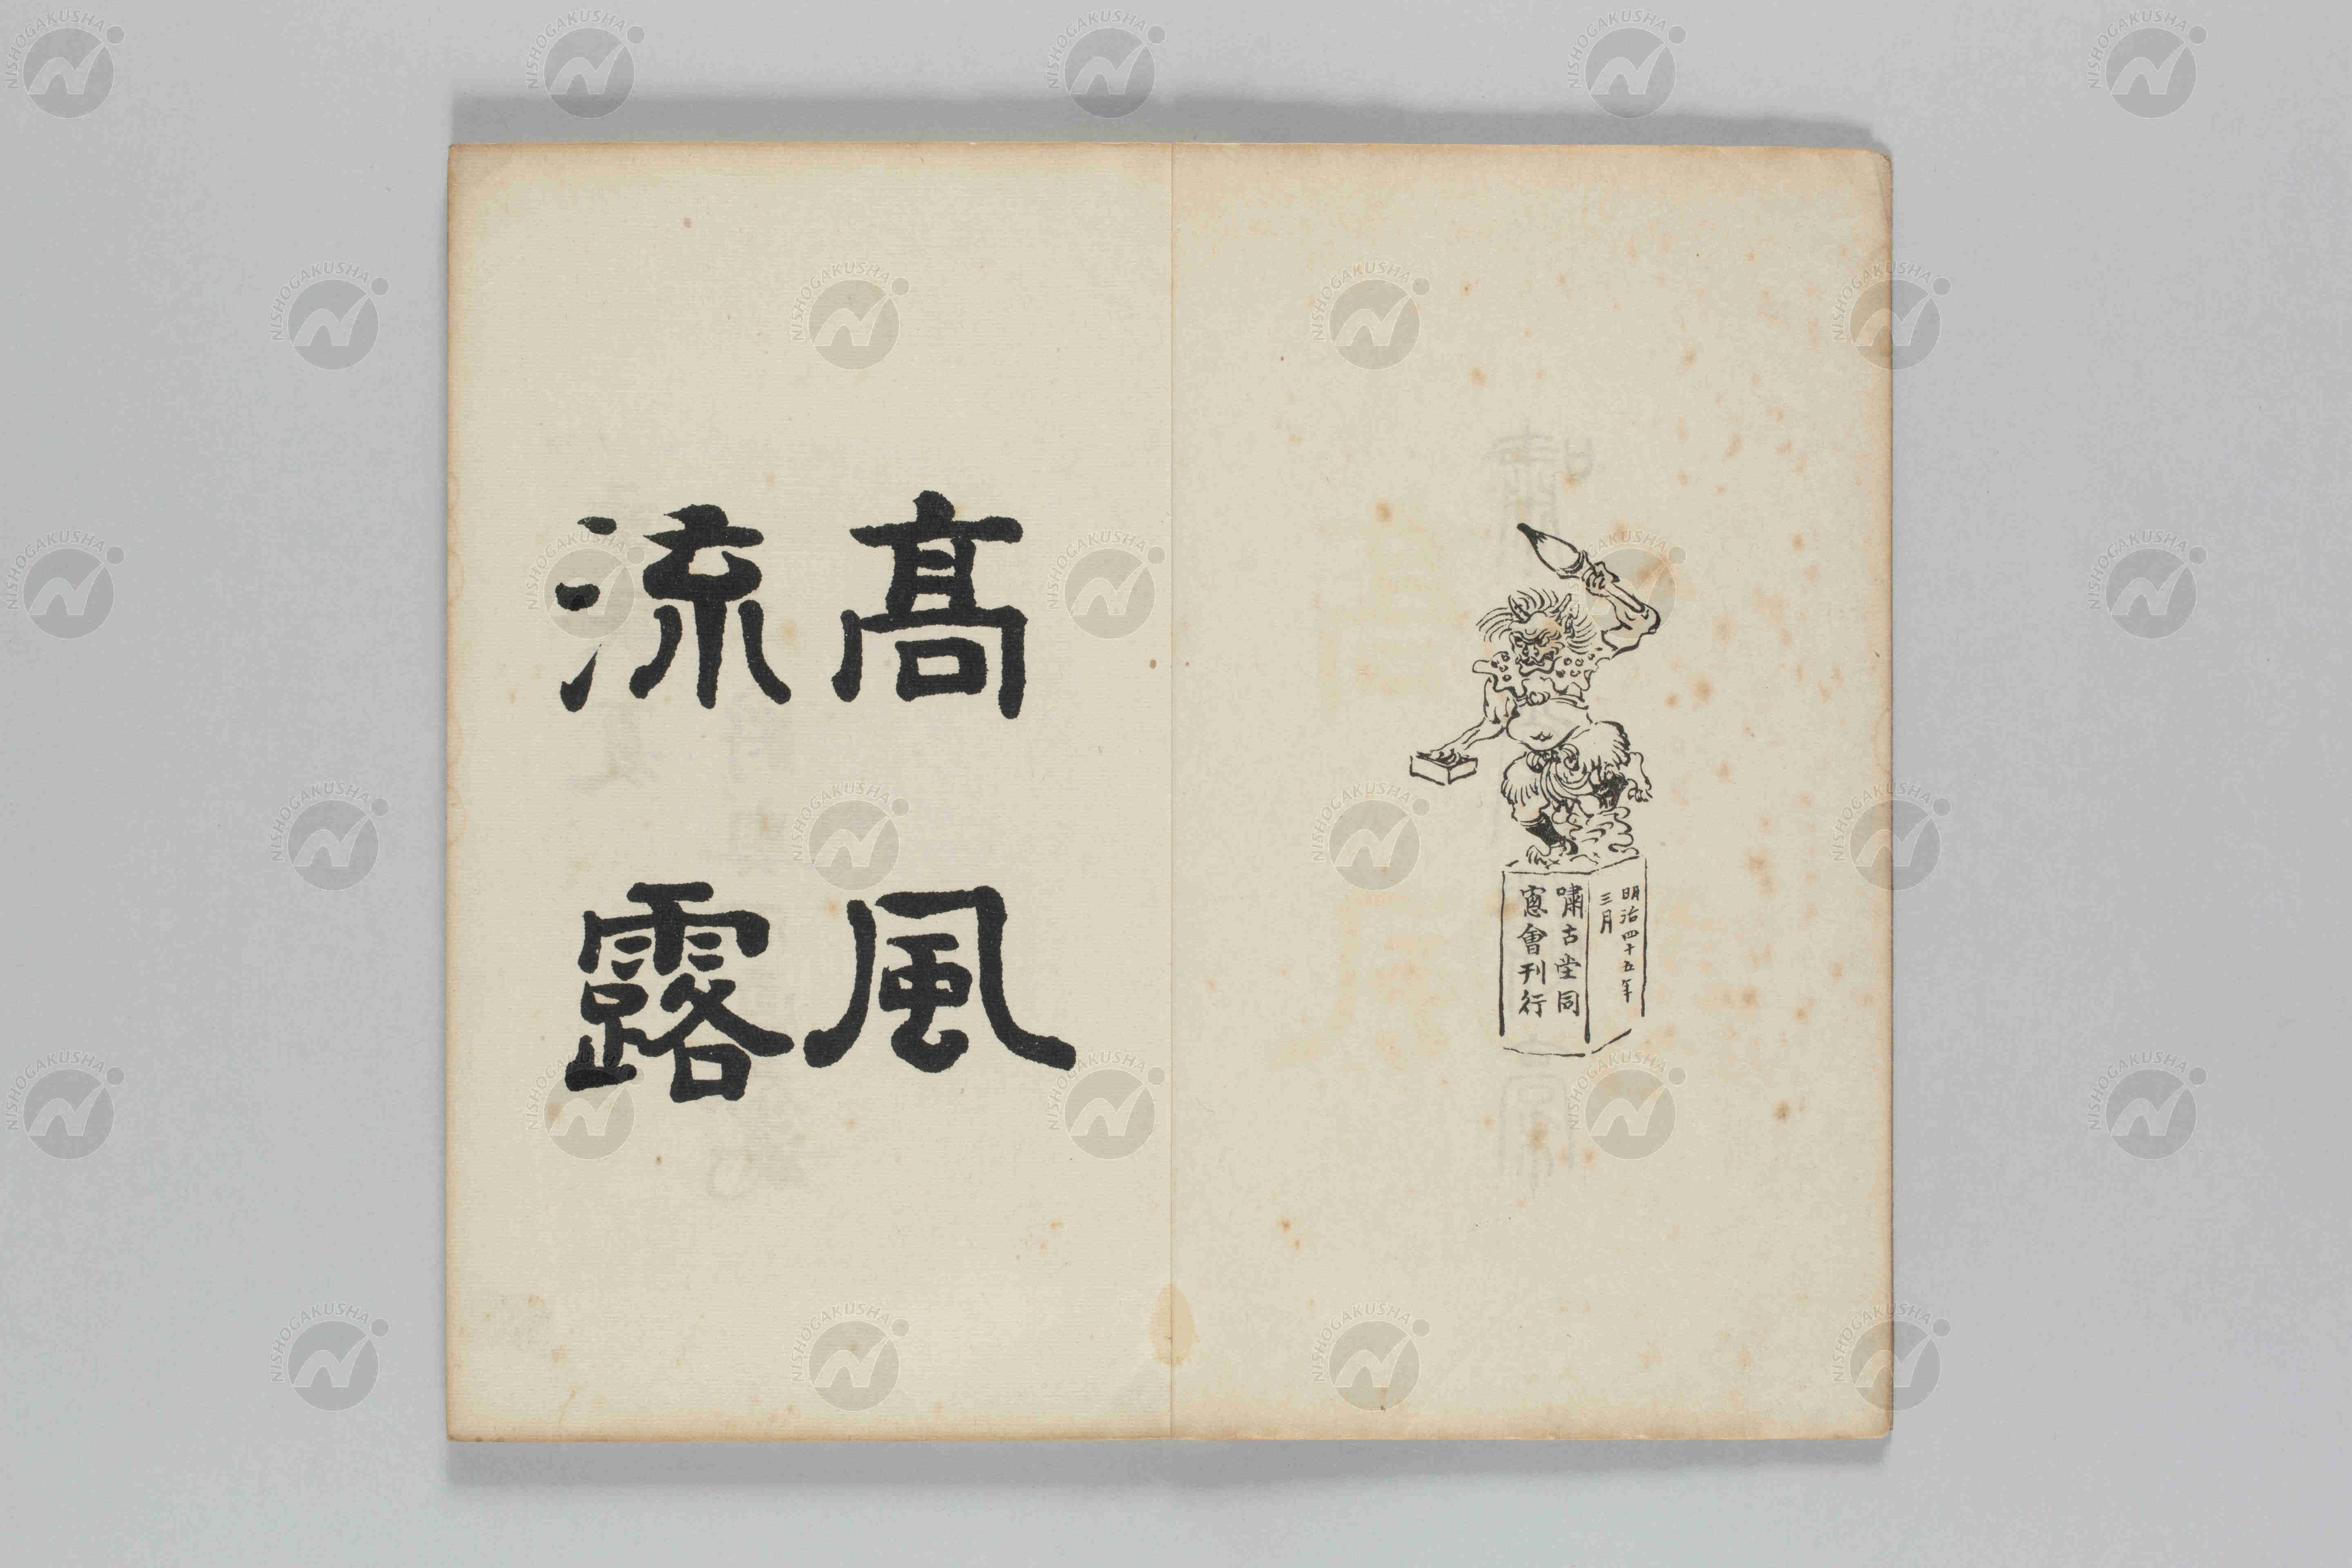 明治四十五年
三月
嘯古堂同
窓會刊行
髙風
流露
NISHOGAKUSHA